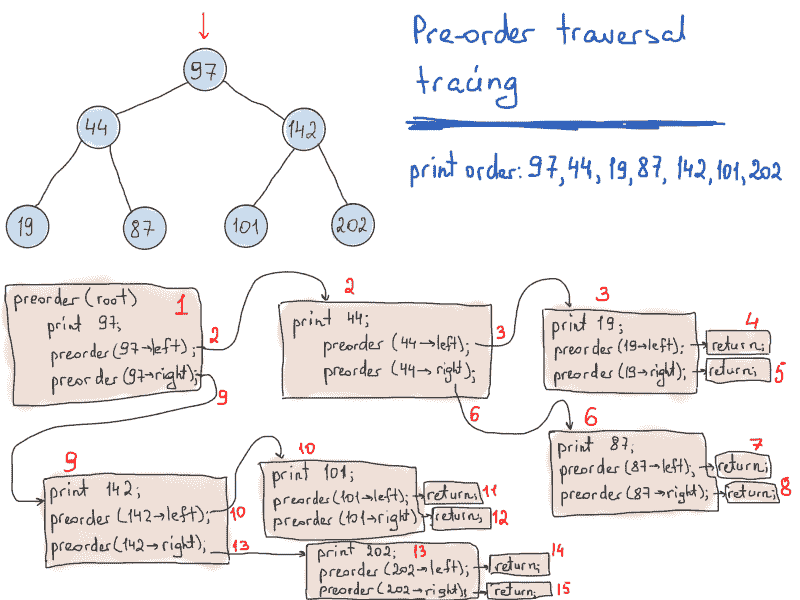 Pre-order traversal
tracing
print order: 97, 44, 19, 87, 142, 101, 202
97
44
142
19
87
101
202
preorder (root)
1
print 97;
preorder (97→left);
2
preorder (97→right);
9
2
print 44;
preorder (44→left);
3
preorder (44→right);
6
3
print 19;
preorder (19→left);
return;
4
preorder (19→right);
return;
5
6
print 87;
preorder (87→left);
return;
7
preorder (87→right);
return;
8
9
print 142;
preorder (142→left);
10
preorder (142→right);
13
10
print 101;
preorder (101→left);
return;
11
preorder (101→right)
return;
12
print 202;
13
preorder (202→left);
return;
14
preorder (202→right);
return;
15